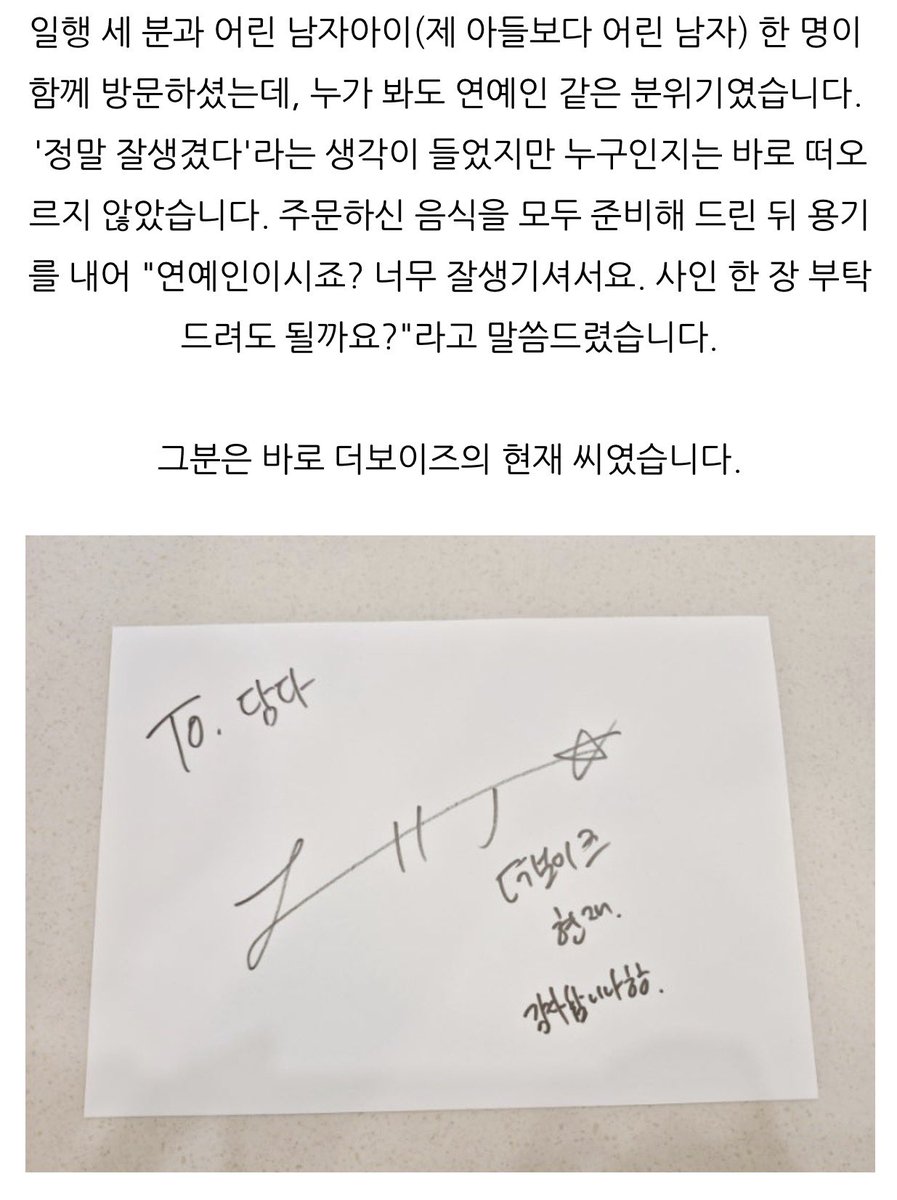 일행 세 분과 어린 남자아이(제 아들보다 어린 남자) 한 명이
함께 방문하셨는데, 누가 봐도 연예인 같은 분위기였습니다.
'정말 잘생겼다'라는 생각이 들었지만 누구인지는 바로 떠오
르지 않았습니다. 주문하신 음식을 모두 준비해 드린 뒤 용기
를 내어 "연예인이시죠? 너무 잘생기셔서요. 사인 한 장 부탁
드려도 될까요?"라고 말씀드렸습니다.
그분은 바로 더보이즈의 현재 씨였습니다.
To. 당다
더보이즈
현재.